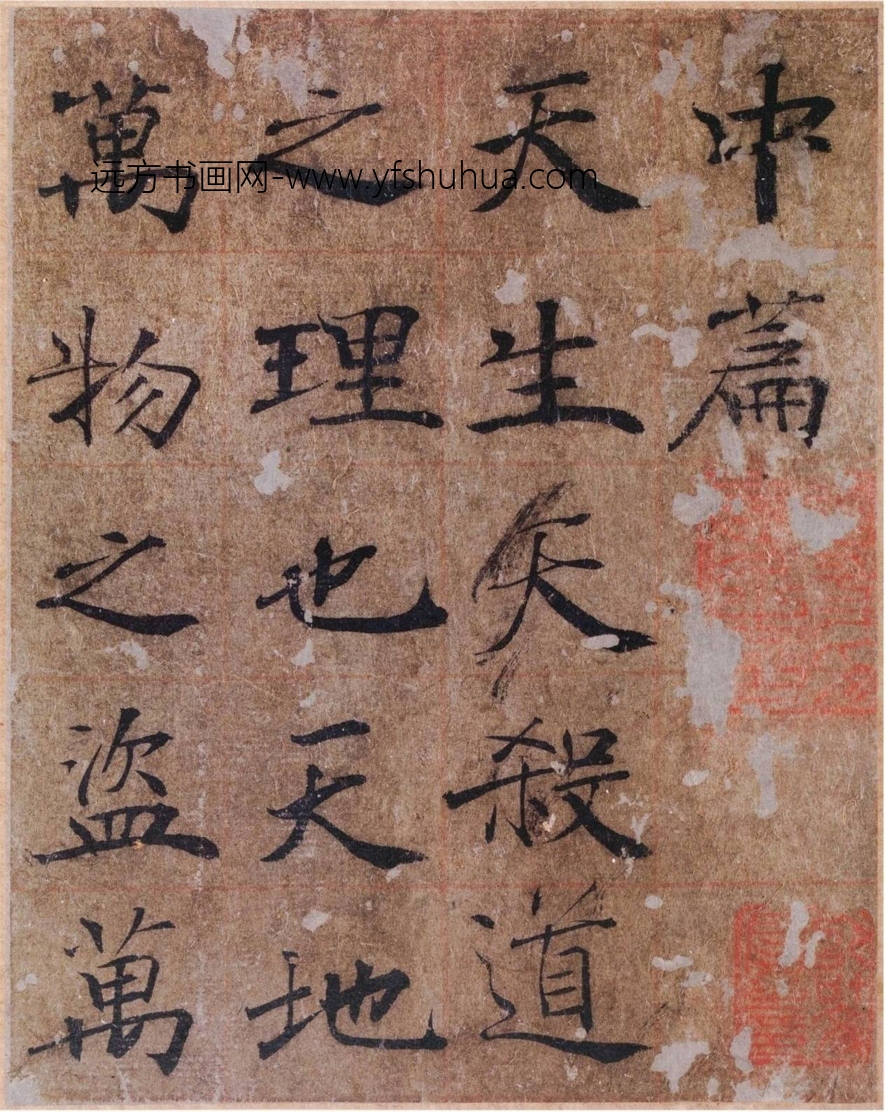 中篇
天生天殺道
之理也天地
萬物之盜萬
远方书画网-www.yfshuhua.com